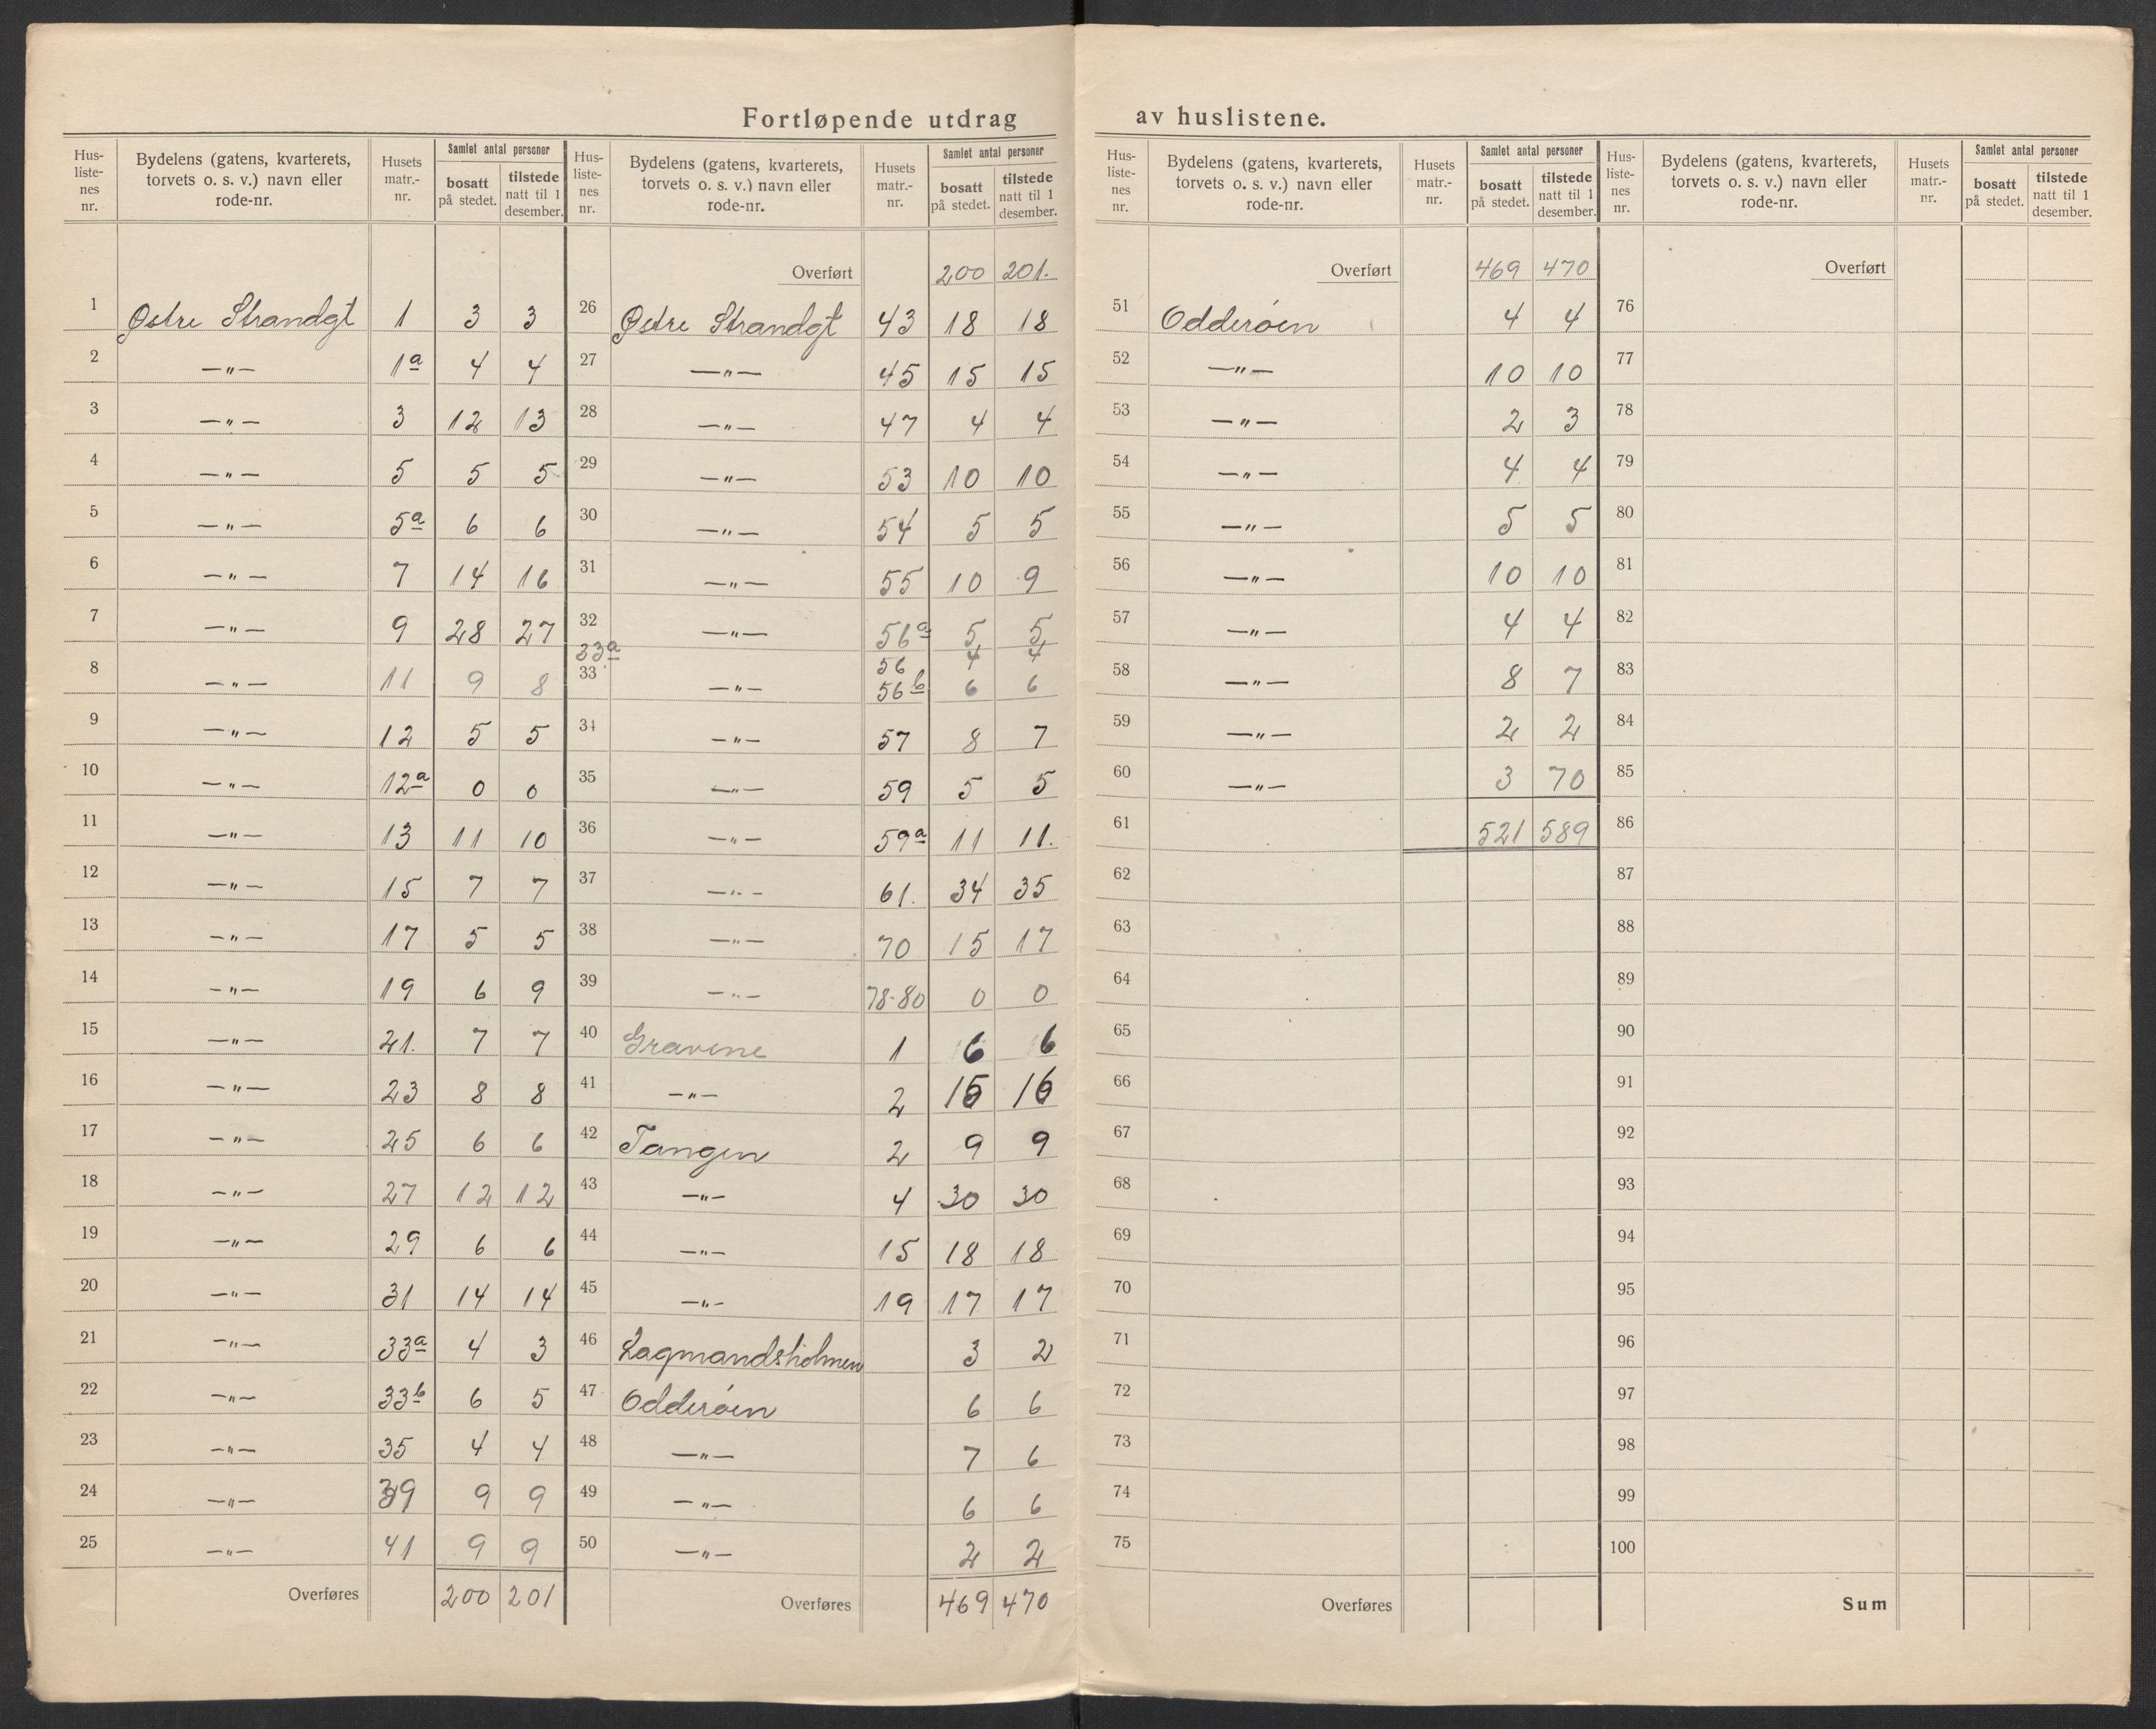 Fortløpende utdrag av huslistene.
Hus-listenes nr. | Bydelens (gatens, kvarterets, torvets o. s. v.) navn eller rode-nr. | Husets matr.-nr. | Samlet antal personer bosatt på stedet. | tilstede natt til 1 desember.
1 Østre Strandgt 1 3 3
2 —„— 1a 4 4
3 —„— 3 12 13
4 —„— 5 5 5
5 —„— 5a 6 6
6 —„— 7 14 16
7 —„— 9 28 27
8 —„— 11 9 8
9 —„— 12 5 5
10 —„— 12a 0 0
11 —„— 13 11 10
12 —„— 15 7 7
13 —„— 17 5 5
14 —„— 19 6 9
15 —„— 21. 7 7
16 —„— 23 8 8
17 —„— 25 6 6
18 —„— 27 12 12
19 —„— 29 6 6
20 —„— 31 14 14
21 —„— 33a 4 3
22 —„— 33b 6 5
23 —„— 35 4 4
24 —„— 39 9 9
25 —„— 41 9 9
Overføres 200 201
Hus-listenes nr. | Bydelens (gatens, kvarterets, torvets o. s. v.) navn eller rode-nr. | Husets matr.-nr. | Samlet antal personer bosatt på stedet. | tilstede natt til 1 desember.
Overført 200 201.
26 Østre Strandgt 43 18 18
27 —„— 45 15 15
28 —„— 47 4 4
29 —„— 53 10 10
30 —„— 54 5 5
31 —„— 55 10 9
32 —„— 56a 5 5
33a 56 4 4
33 —„— 56b 6 6
34 —„— 57 8 7
35 —„— 59 5 5
36 —„— 59a 11 11.
37 —„— 61. 34 35
38 —„— 70 15 17
39 —„— 78-80 0 0
40 Gravene 1 6 6
41 —„— 2 16 16
42 Tangen 2 9 9
43 —„— 4 30 30
44 —„— 15 18 18
45 —„— 19 17 17
46 Lagmandsholmen 3 2
47 Odderøen 6 6
48 —„— 7 6
49 —„— 6 6
50 —„— 2 2
Overføres 469 470
Hus-listenes nr. | Bydelens (gatens, kvarterets, torvets o. s. v.) navn eller rode-nr. | Husets matr.-nr. | Samlet antal personer bosatt på stedet. | tilstede natt til 1 desember.
Overført 469 470
51 Odderøen 4 4
52 —„— 10 10
53 —„— 2 3
54 —„— 4 4
55 —„— 5 5
56 —„— 10 10
57 —„— 4 4
58 —„— 8 7
59 —„— 2 2
60 —„— 3 70
61 521 589
62
63
64
65
66
67
68
69
70
71
72
73
74
75
Overføres
Hus-listenes nr. | Bydelens (gatens, kvarterets, torvets o. s. v.) navn eller rode-nr. | Husets matr.-nr. | Samlet antal personer bosatt på stedet. | tilstede natt til 1 desember.
Overført
76
77
78
79
80
81
82
83
84
85
86
87
88
89
90
91
92
93
94
95
96
97
98
99
100
Sum